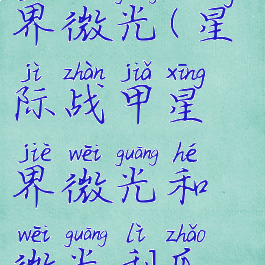 界微光(星
jì zhàn jiǎ xīng
际战甲星
jiè wēi guāng hé
界微光和
wēi guāng lì zhǎo
微光利爪